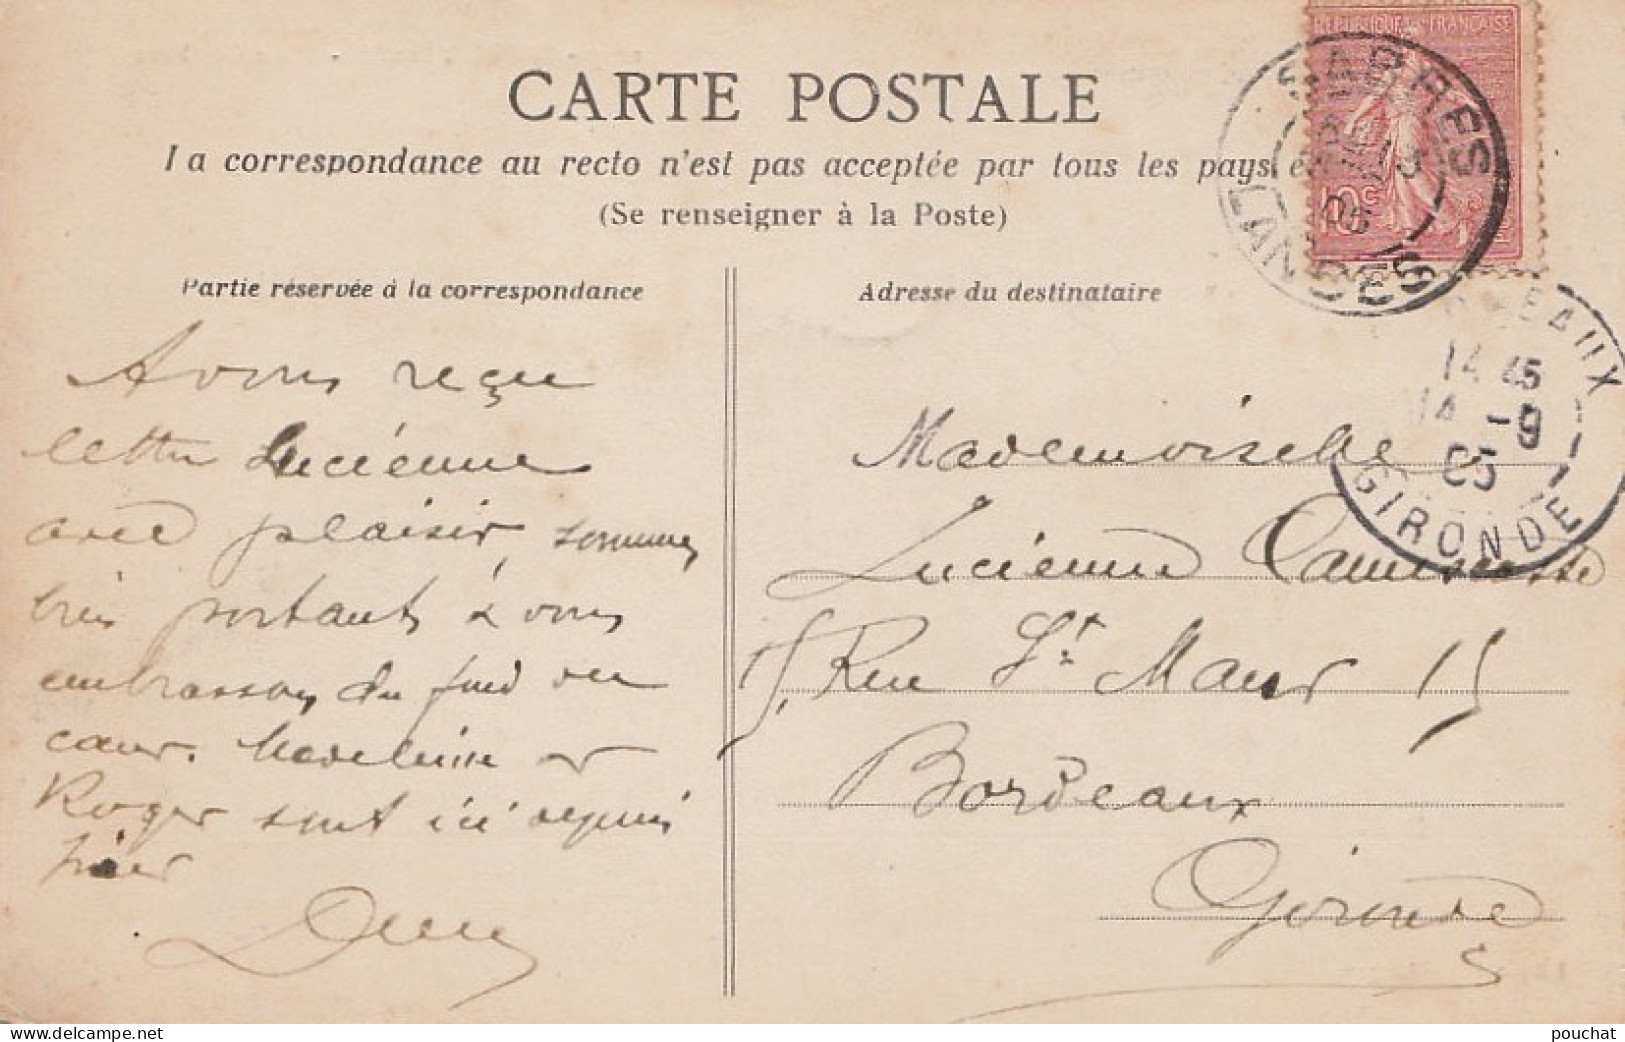 CARTE POSTALE
La correspondance au recto n'est pas acceptée par tous les pays é
(Se renseigner à la Poste)
RÉPUBLIQUE FRANÇAISE
10c
SABRES
13
05
LANDES
Partie réservée à la correspondance
Adresse du destinataire
EAUX
14 45
14 -9
05
GIRONDE
Avons reçu
lettre Lucienne
avec plaisir, sommes
bien portants & vous
embrassons du fond du
cœur. Madeleine et
Roger sont ici depuis
hier
Mademoiselle
Lucienne
15, Rue St Maur 15
Bordeaux
Gironde
www.delcampe.net
pouchat